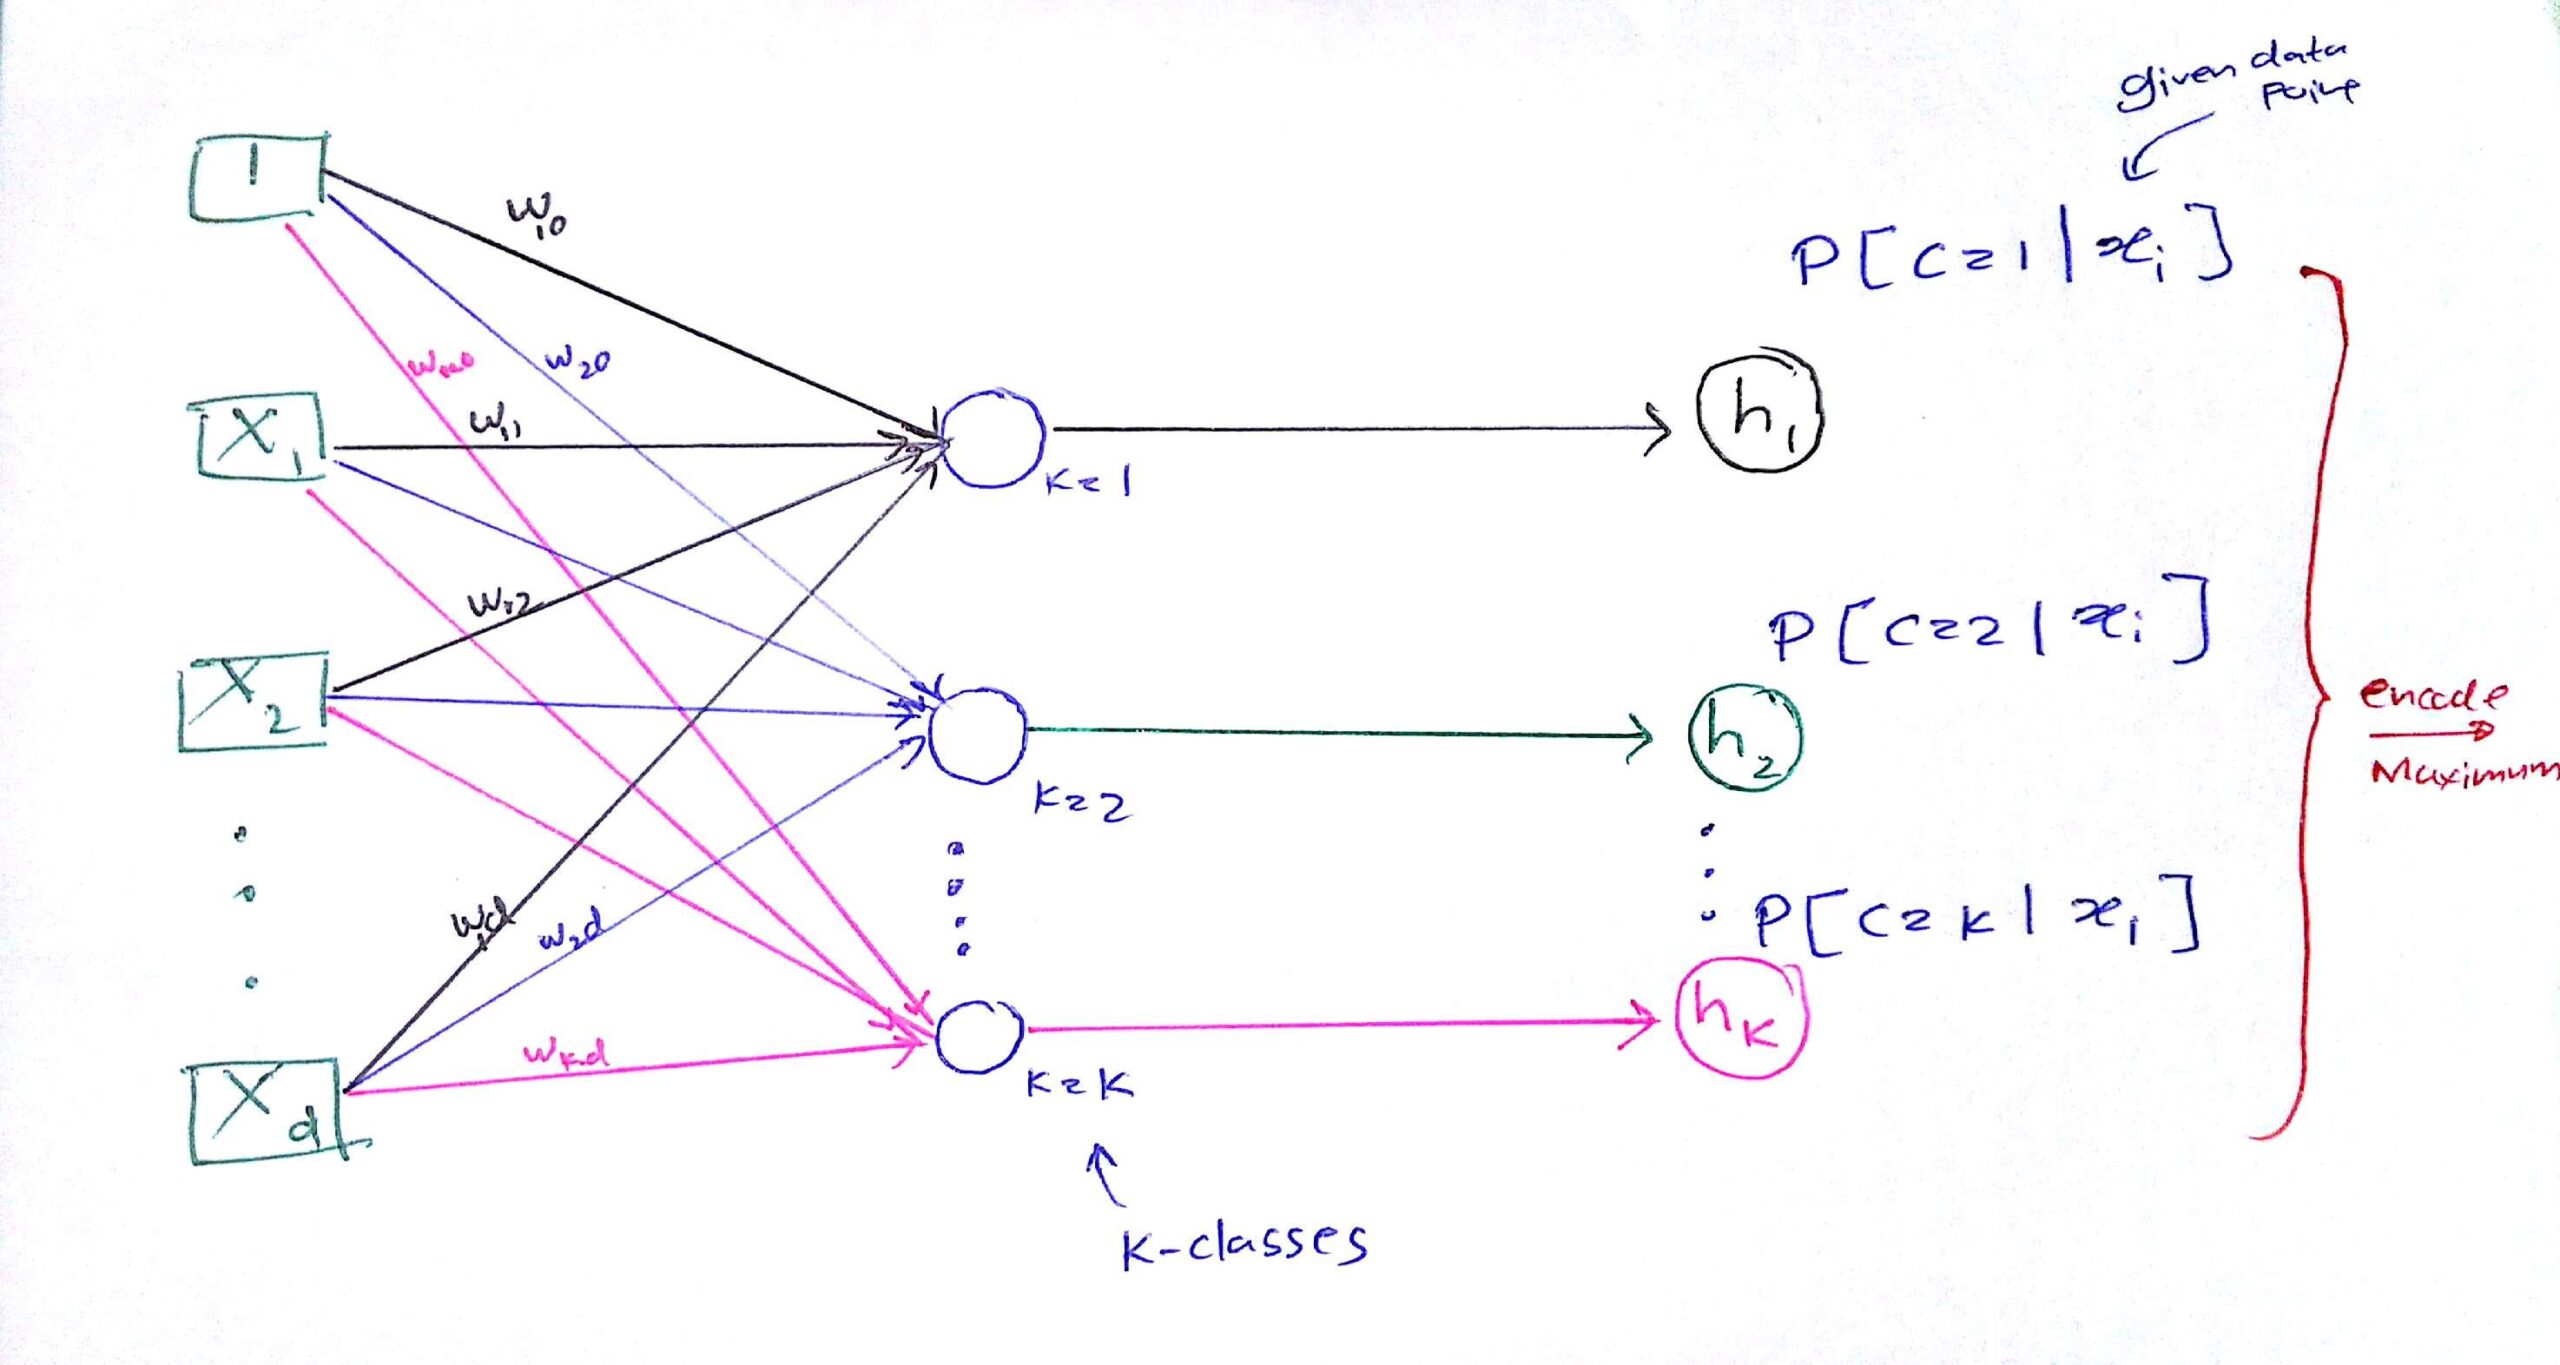 given data
point
1
P[C=1|xi]
W10
WK0
W20
X1
W11
h1
K=1
W12
P[C=2|xi]
X2
h2
encode
Maximum
K=2
P[C=K|xi]
W1d
W2d
hK
WKd
K=K
Xd
K-classes